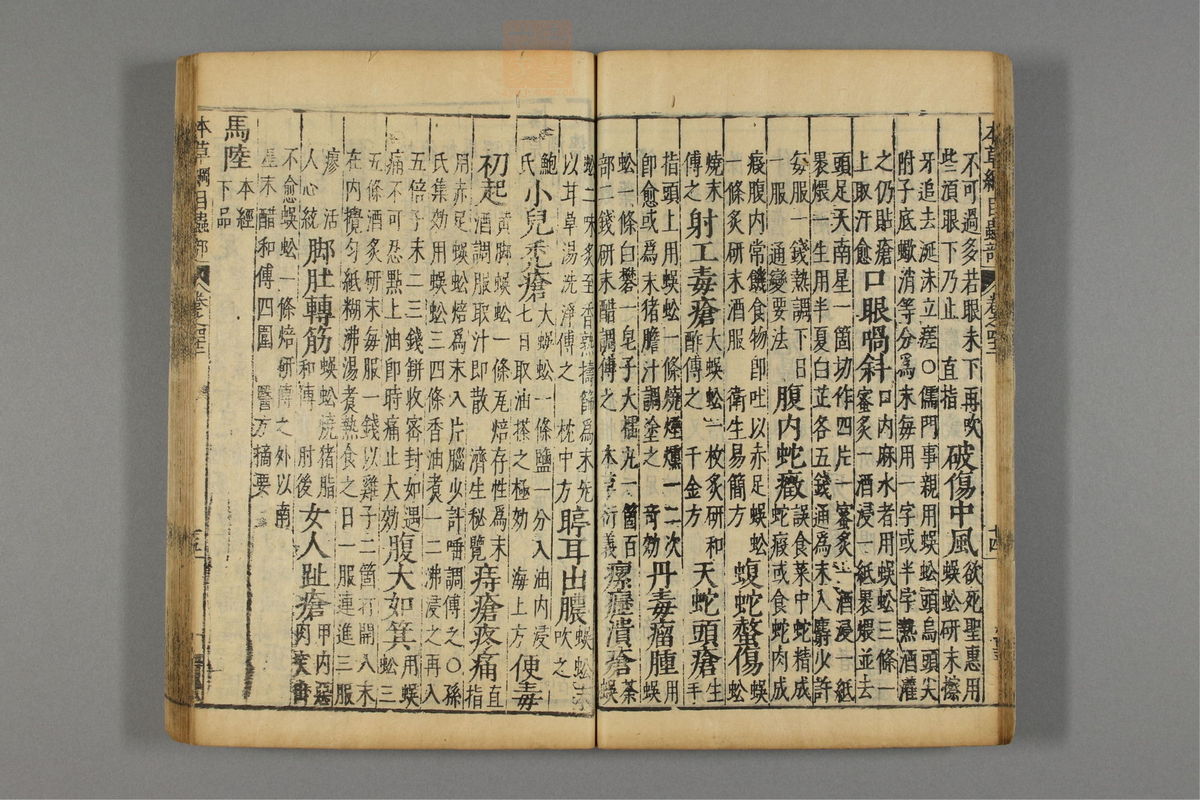 本草綱目蟲部 卷之四十二 十四
不可過多若眼未下再吹
些須眼下乃止 直指
破傷中風
欲死聖惠用
蜈蚣研末擦
牙追去涎沫立瘥○儒門事親用蜈蚣頭烏頭尖
附子底蠍消等分爲末每用一字或半字熱酒灌
之仍貼瘡
上取汗愈
口眼喎斜
口内麻水者用蜈蚣三條一
蜜炙一酒浸一紙褁煨並去
頭足天南星一箇切作四片一蜜炙一酒浸一紙
褁煨一生用半夏白芷各五錢通爲末入麝少許
每服一錢熱調下日
一服 通變要法
腹内蛇癥
誤食菜中蛇精成
蛇瘕或食蛇肉成
瘕腹内常饑食物即吐以赤足蜈蚣
一條炙研末酒服 衛生易簡方
蝮蛇螫傷
蜈
蚣
燒末
傅之
射工毒瘡
大蜈蚣一枚炙研和
酢傅之 千金方
天蛇頭瘡
生
指頭上用蜈蚣一條燒煙熏一二次
即愈或爲末猪膽汁調塗之 奇効
丹毒瘤腫
用
蜈
蚣一條白礬一皂子大櫑丸一箇百
部二錢研末醋調傅之 本草衍義
瘰癧潰瘡
茶
蜈
蚣二味炙至香熟擣篩爲末先
以甘草湯洗淨傅之 枕中方
聤耳出膿
蜈蚣末
吹之
鮑
氏
小兒禿瘡
大蜈蚣一條鹽一分入油内浸
七日取油搽之極効 海上方
便毒
初起
黄脚蜈蚣一條瓦焙存性爲末
酒調服取汗即散 濟生秘覽
痔瘡疼痛
直
指
用赤足蜈蚣焙爲末入片腦少許唾調傅之○孫
氏集效用蜈蚣三四條香油煮一二沸浸之再入
五倍子末二三錢餅收密封如遇
痛不可忍點上油即時痛止大効
腹大如箕
用蜈
蚣三
五條酒炙研末每服一錢以雞子二箇打開入末
在内攪匀紙糊沸湯煮熟食之日一服連進三服
瘳 活
人心統
脚肚轉筋
蜈蚣燒猪脂
和傅 肘後
女人趾瘡
甲内惡
肉突出
不愈蜈蚣一條焙研傅之外以南
星末醋和傅四圍 醫方摘要
馬陸
本經
下品
本草綱目蟲部 卷之四十二